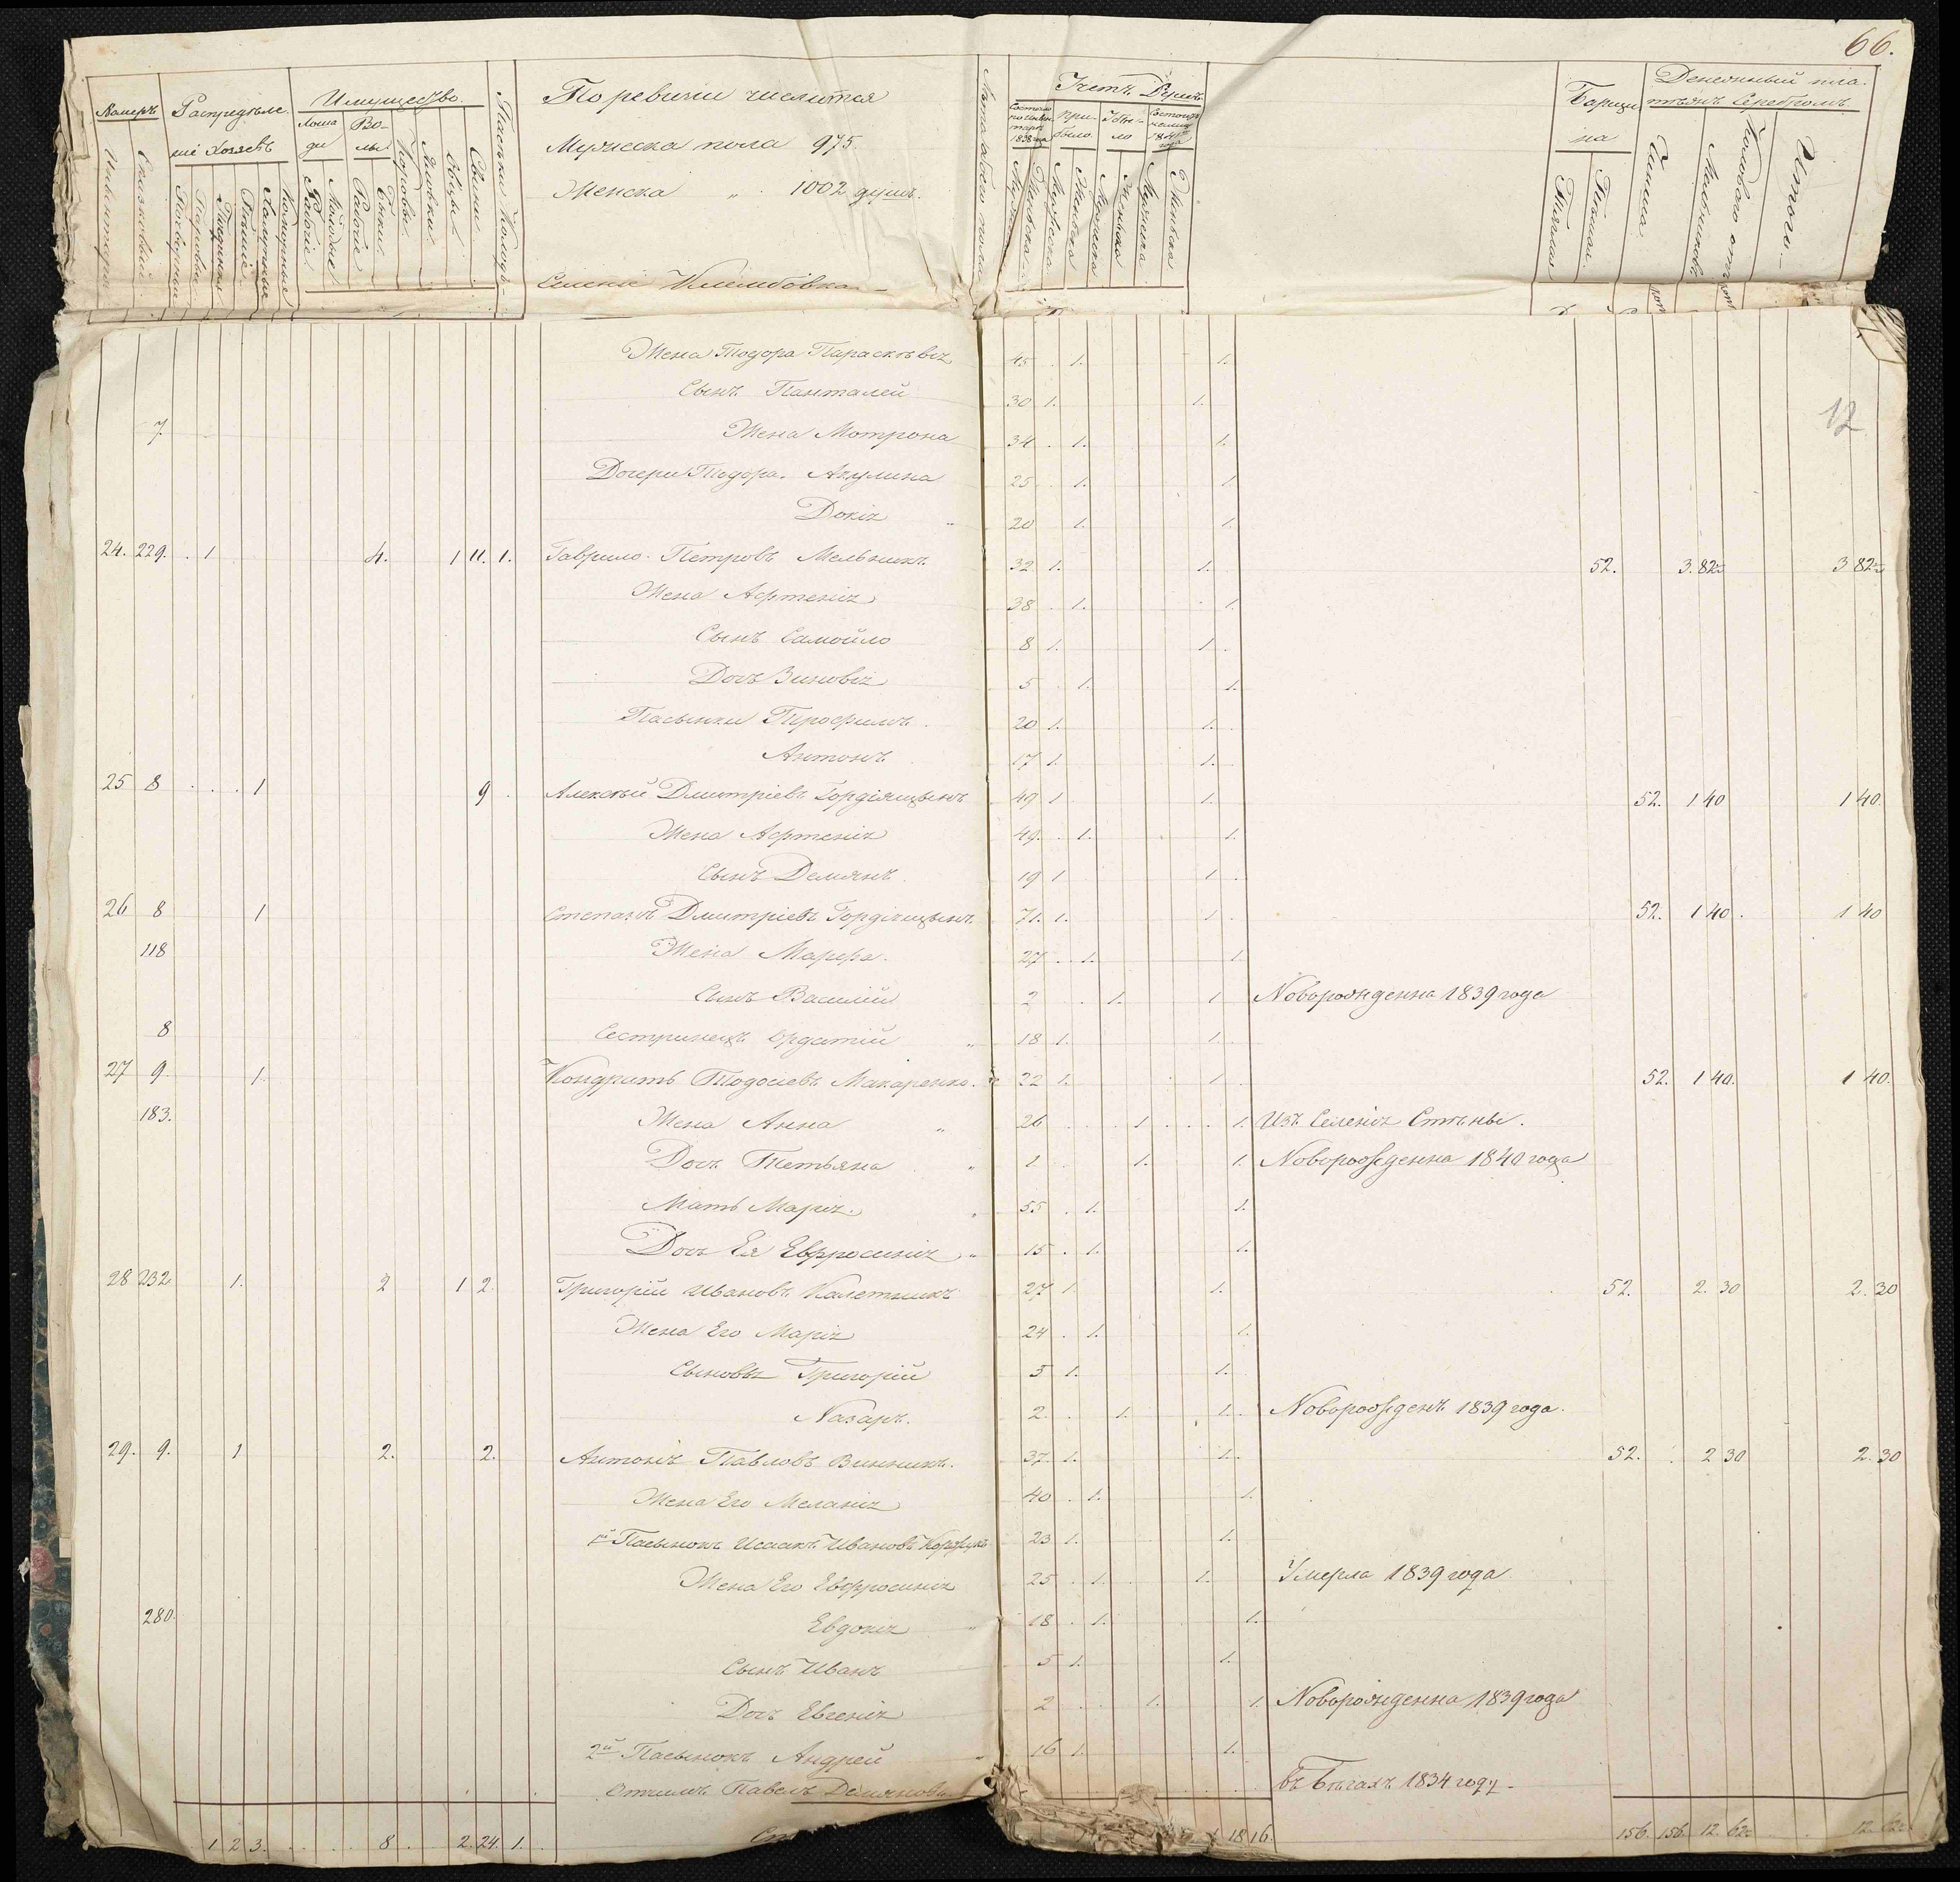 66.
Номеръ
Инвентаря
Сказковый
Распредѣле-
ніе Хозяевъ
Имущество
Лоша
ди
Во-
лы
Рабочіе
Рабочіе
Коровы
Яловки
Овцы
Свиньи
По ревизіи числится
Мужеска пола 975.
Женска „ 1002 душъ.
Селеніе Клембовка
Лѣта
Счетъ Душъ
При-
было
Убы-
ло
Барщи
на
Тяглая
Пѣшая
Денежный пла-
тежъ Серебромъ
Чинша
Итого.
12
Жена Тодора Параскѣвія 45 . 1. 1.
Сынъ Панталей 30 1. 1.
7. Жена Мотрона 34 . 1. 1.
Дочери Тодора. Акулина 25 . 1. 1.
Докія „ 20 1. 1.
24. 229. . 1 4. 1 11. 1. Гаврило Петровъ Мельникъ 32 1. 1. 52. 3. 82 3 82
Жена Афтенія 38 . 1. 1.
Сынъ Самойло 8 1. 1.
Дочь Зиновія 5 . 1. 1.
Пасынки Трофимъ 20 1. 1.
Антонъ 17 1. 1.
25 8 . . . 1 9 . Алексѣй Дмитріевъ Гордіяицынъ 49 1 1. 52. 1 40 1 40.
Жена Афтенія 49. . 1. 1.
Сынъ Демянъ. 19 1 1 .
26 8 1 Степанъ Дмитріевъ Гордіяицынъ. 71. 1. 1 . 52. 1 40 . 1 40
118 Жена Марфа. 27 . 1. 1.
Сынъ Василій 2 . 1. 1 Новорожденна 1839 года
8 Сестринецъ „ 18 1. 1.
27 9 1. Кондратъ Тодосіевъ Макаренко. 22 1. 1. 52. 1 40. 1 40.
183. Жена Анна „ 26 . . . 1 . . . 1. Изъ Селенія Стѣны.
Дочь Тетьяна „ 1 1. 1. Новорожденна 1840 года
Мать Марія. „ 55 . 1. 1.
Дочь Ея Евфросинія „ 15 . 1. 1.
28 232. 1. 2 1 2. Григорій Ивановъ Калетникъ 27 1 1. 52. 2. 30 2. 30
Жена Его Марія 24 . 1. 1.
Сыновья Григорій 5 1. 1.
Назаръ. 2. . 1. 1. . Новорожденъ 1839 года.
29. 9. 1 2. 2. Антоній Павловъ Винникъ. 37. 1. 1. 52. . 2 30 2. 30
Жена Его Меланія 40 . 1. 1.
1й Пасынокъ Исаакъ Ивановъ 23 1. 1.
Жена Его Евфросинія 25 . 1. 1. Умерла 1839 года
280. Евдокія „ 18 . 1. 1.
Сынъ Иванъ 5 1. 1.
Дочь Евгенія 2 . . 1. 1. Новорожденна 1839 года
2й Пасынокъ Андрей „ 16 1. 1.
Отчимъ Павелъ Демяновъ въ бѣгахъ 1834 году
1 2 3. . . . 8 . 2. 24. 1. 18 16. 156. 156. 12. 62 12. 62